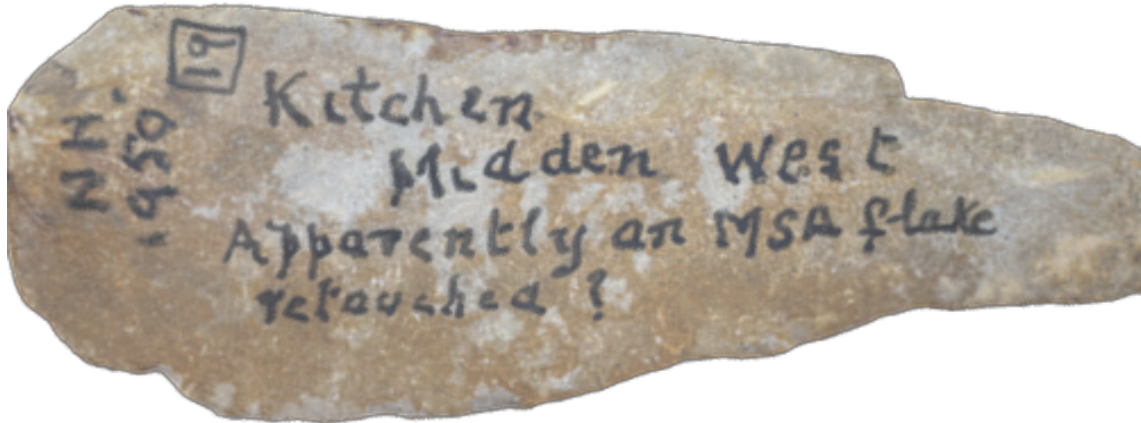 19
N H.
1950.
Kitchen
Midden West
Apparently an MSA flake
retouched?